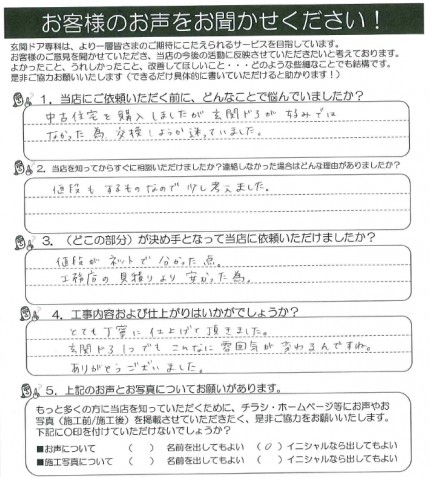 お客様のお声をお聞かせください！
玄関ドア専科は、より一層皆さまのご期待にこたえられるサービスを目指しています。
お客様のご意見を聞かせていただき、当店の今後の活動に反映させていただきたいと考えております。
よかったこと、うれしかったこと、改善してほしいこと・・・どのような些細なことでも結構です。
是非ご協力お願いいたします（できるだけ具体的に書いていただけると助かります！）
1．当店にご依頼いただく前に、どんなことで悩んでいましたか？
中古住宅を購入しましたが玄関ドアが好みでは
なかった為、交換しようか迷っていました。
2．当店を知ってからすぐに相談いただけましたか？連絡しなかった場合はどんな理由がありましたか？
値段もするものなので少し考えました。
3．（どこの部分）が決め手となって当店に依頼いただけましたか？
値段がネットで分かった点。
工務店の見積りより安かった為。
4．工事内容および仕上がりはいかがでしょうか？
とても丁寧に仕上げて頂きました。
玄関ドア1つでもこんなに雰囲気が変わるんですね。
ありがとうございました。
5．上記のお声とお写真についてお願いがあります。
もっと多くの方に当店を知っていただくために、チラシ・ホームページ等にお声やお
写真（施工前/施工後）を掲載させていただきたく、是非ご協力をお願いいたします。
下記に○印を付けていただけないでしょうか？
■お声について （ ） 名前を出してもよい （○）イニシャルなら出してもよい
■施工写真について （ ） 名前を出してもよい （ ）イニシャルなら出してもよい